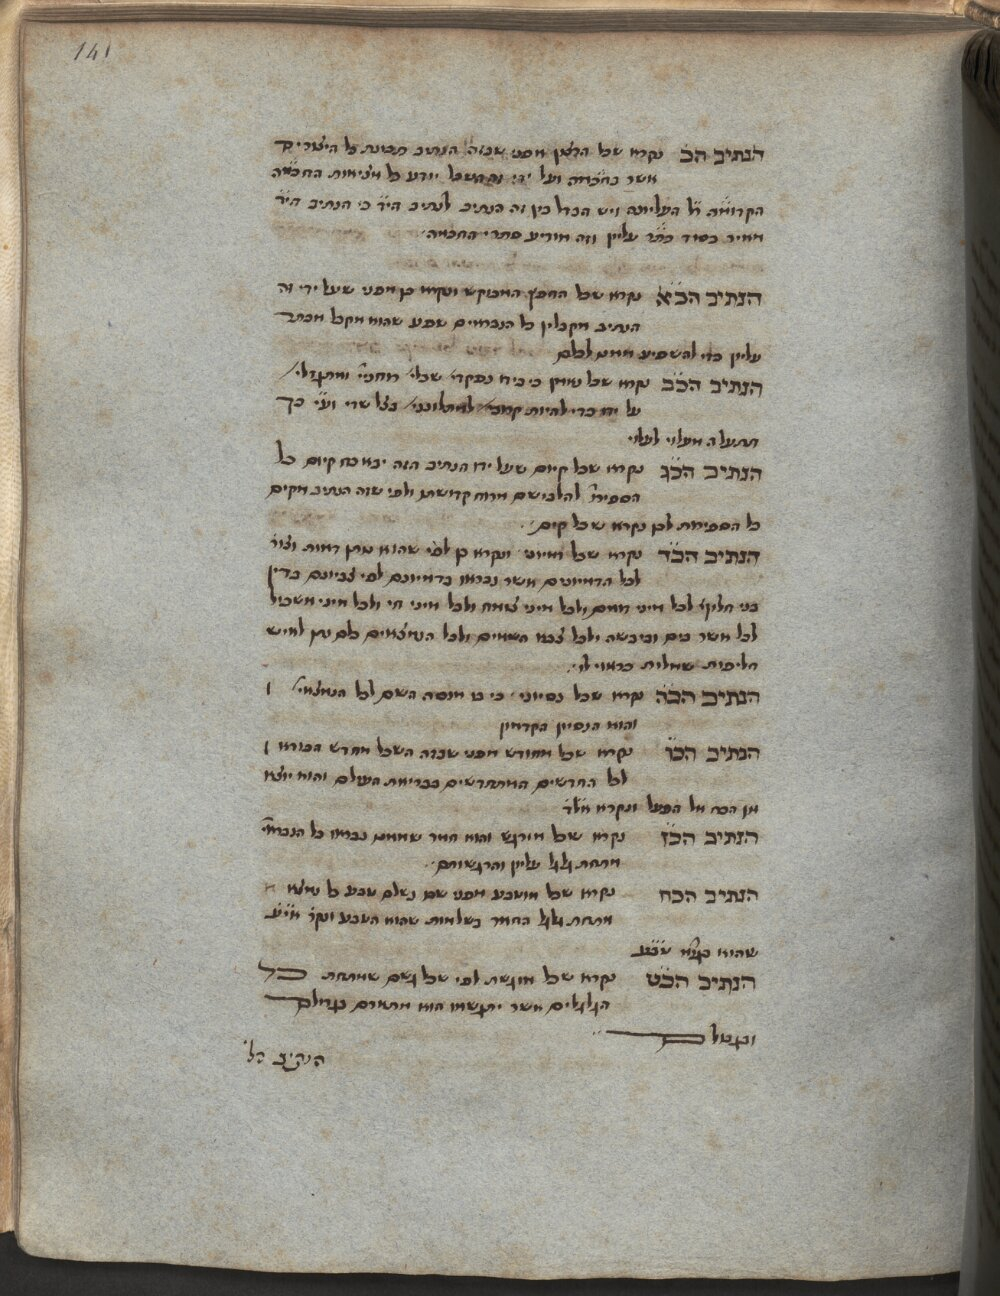 141
הנתיב הכ נקרא שכל הרצון מפני שבזה הנתיב תכונת כל היצורים
אשר בחכמה ועל ידי זה השכל יודע כל מציאות החכמה
הקדומ״ת ר״ל העליונה ויש הבדל בין זה הנתיב לנתיב הי״ד כי הנתיב הי״ד
מאיר בסוד כתר עליון וזה מודיע סתרי החכמה
הנתיב הכ״א נקרא שכל החפץ המבוקש ונקרא כן מפני שעל ידי זה
הנתיב מקבלין כל הנבראים שפע שהוא מקבל מכתר
עליון כדי להשפיע מהם לכלם
הנתיב הכ״ב נקרא שכל נאמן כי כח נסקרי׳ שכלי׳ רוחני׳ ומתגדלי׳
על ידו כדי להיות קרובי׳ למתלונני׳ בצל שדי וע״י כך
תתעלה מעלוי לעלוי
הנתיב הכ״ג נקרא שכל קיום שעל ידי הנתיב הזה יבא כח קיום כל
הספירו׳ להלבישם מרוח קדושתן ולפי שזה הנתיב מקים
כל הספירות לכן נקרא שכל קים׃
הנתיב הכ״ד נקרא שכל דמיוני ונקרא כן לפי שהוא נותן דמות וצור׳
לכל הדמיונים אשר נבראו בדמיונם לפי צביונם כדין
בני חלוף׳ לכל מיני דומם ולכל מיני צומח ולכל מיני חי ולכל מיני משכיל
לכל אשר בים וביבשה ולכל צבא השמים ולכל הנמצאים כלם נתן לאיש
חליפות שמלות כראוי לו׃
הנתיב הכ״ה נקרא שכל נסיוני כי בו מנסה השם לכל הנמצאי׳ ו
והוא הנסיון הקדמון
הנתיב הכ״ו נקרא שכל מחודש מפני שבזה השכל מחדש הבורא ו
לכל החדשים המתחדשים בבריאת העולם והוא יוצא
מן הכח אל הפעל ונקרא
הנתיב הכ״ז נקרא שכל מורגש והוא חמר שממנו נבראו כל הנבראי׳
תחת גלגל עליון והרגשותם׃
הנתיב הכח נקרא שכל מוטבע מפני שבו נשלם טבע כל נמצא
תחת גלגל החמה בשלמות שהוא הטבע ונקר׳
שהוא
הנתיב הכ״ט נקרא שכל מוגשם לפי שכל גשם שתחת כל
הגלגלים אשר יתגשמו הוא מתארם בגדולם
ובגבול
הנתיב הל׳